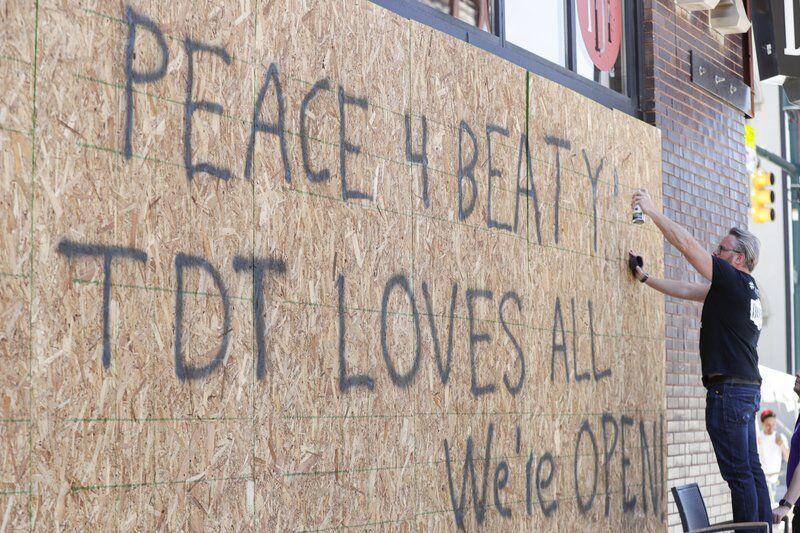 PEACE 4 BEATTY'
TDT LOVES ALL
We're OPEN!